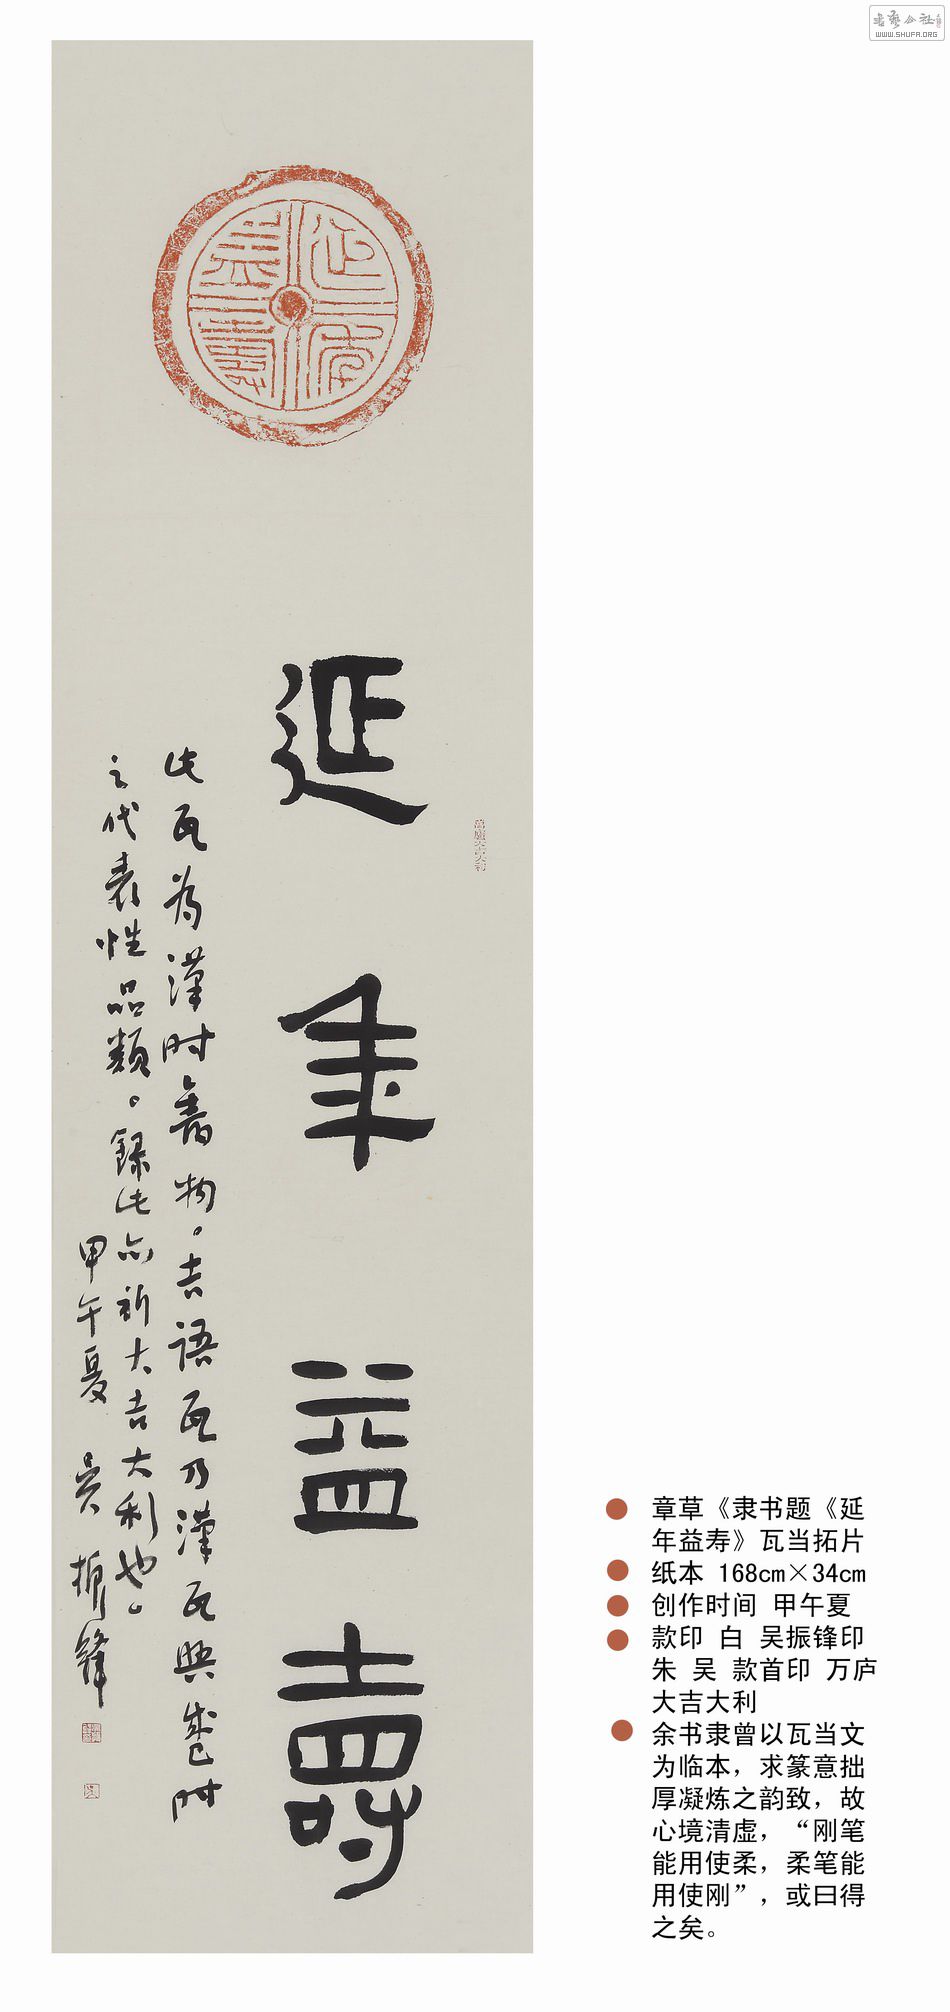 书艺公社
WWW.SHUFA.ORG
延年益壽
延年益壽
萬廬大吉大利
此瓦為漢時舊物。吉語瓦乃漢瓦興盛時
之代表性品類。錄此亦祈大吉大利也。
甲午夏 吴振鋒
章草《隶书题《延
年益寿》瓦当拓片
纸本 168cm×34cm
创作时间 甲午夏
款印 白 吴振锋印
朱 吴 款首印 万庐
大吉大利
余书隶曾以瓦当文
为临本，求篆意拙
厚凝炼之韵致，故
心境清虚，“刚笔
能用使柔，柔笔能
用使刚”，或曰得
之矣。